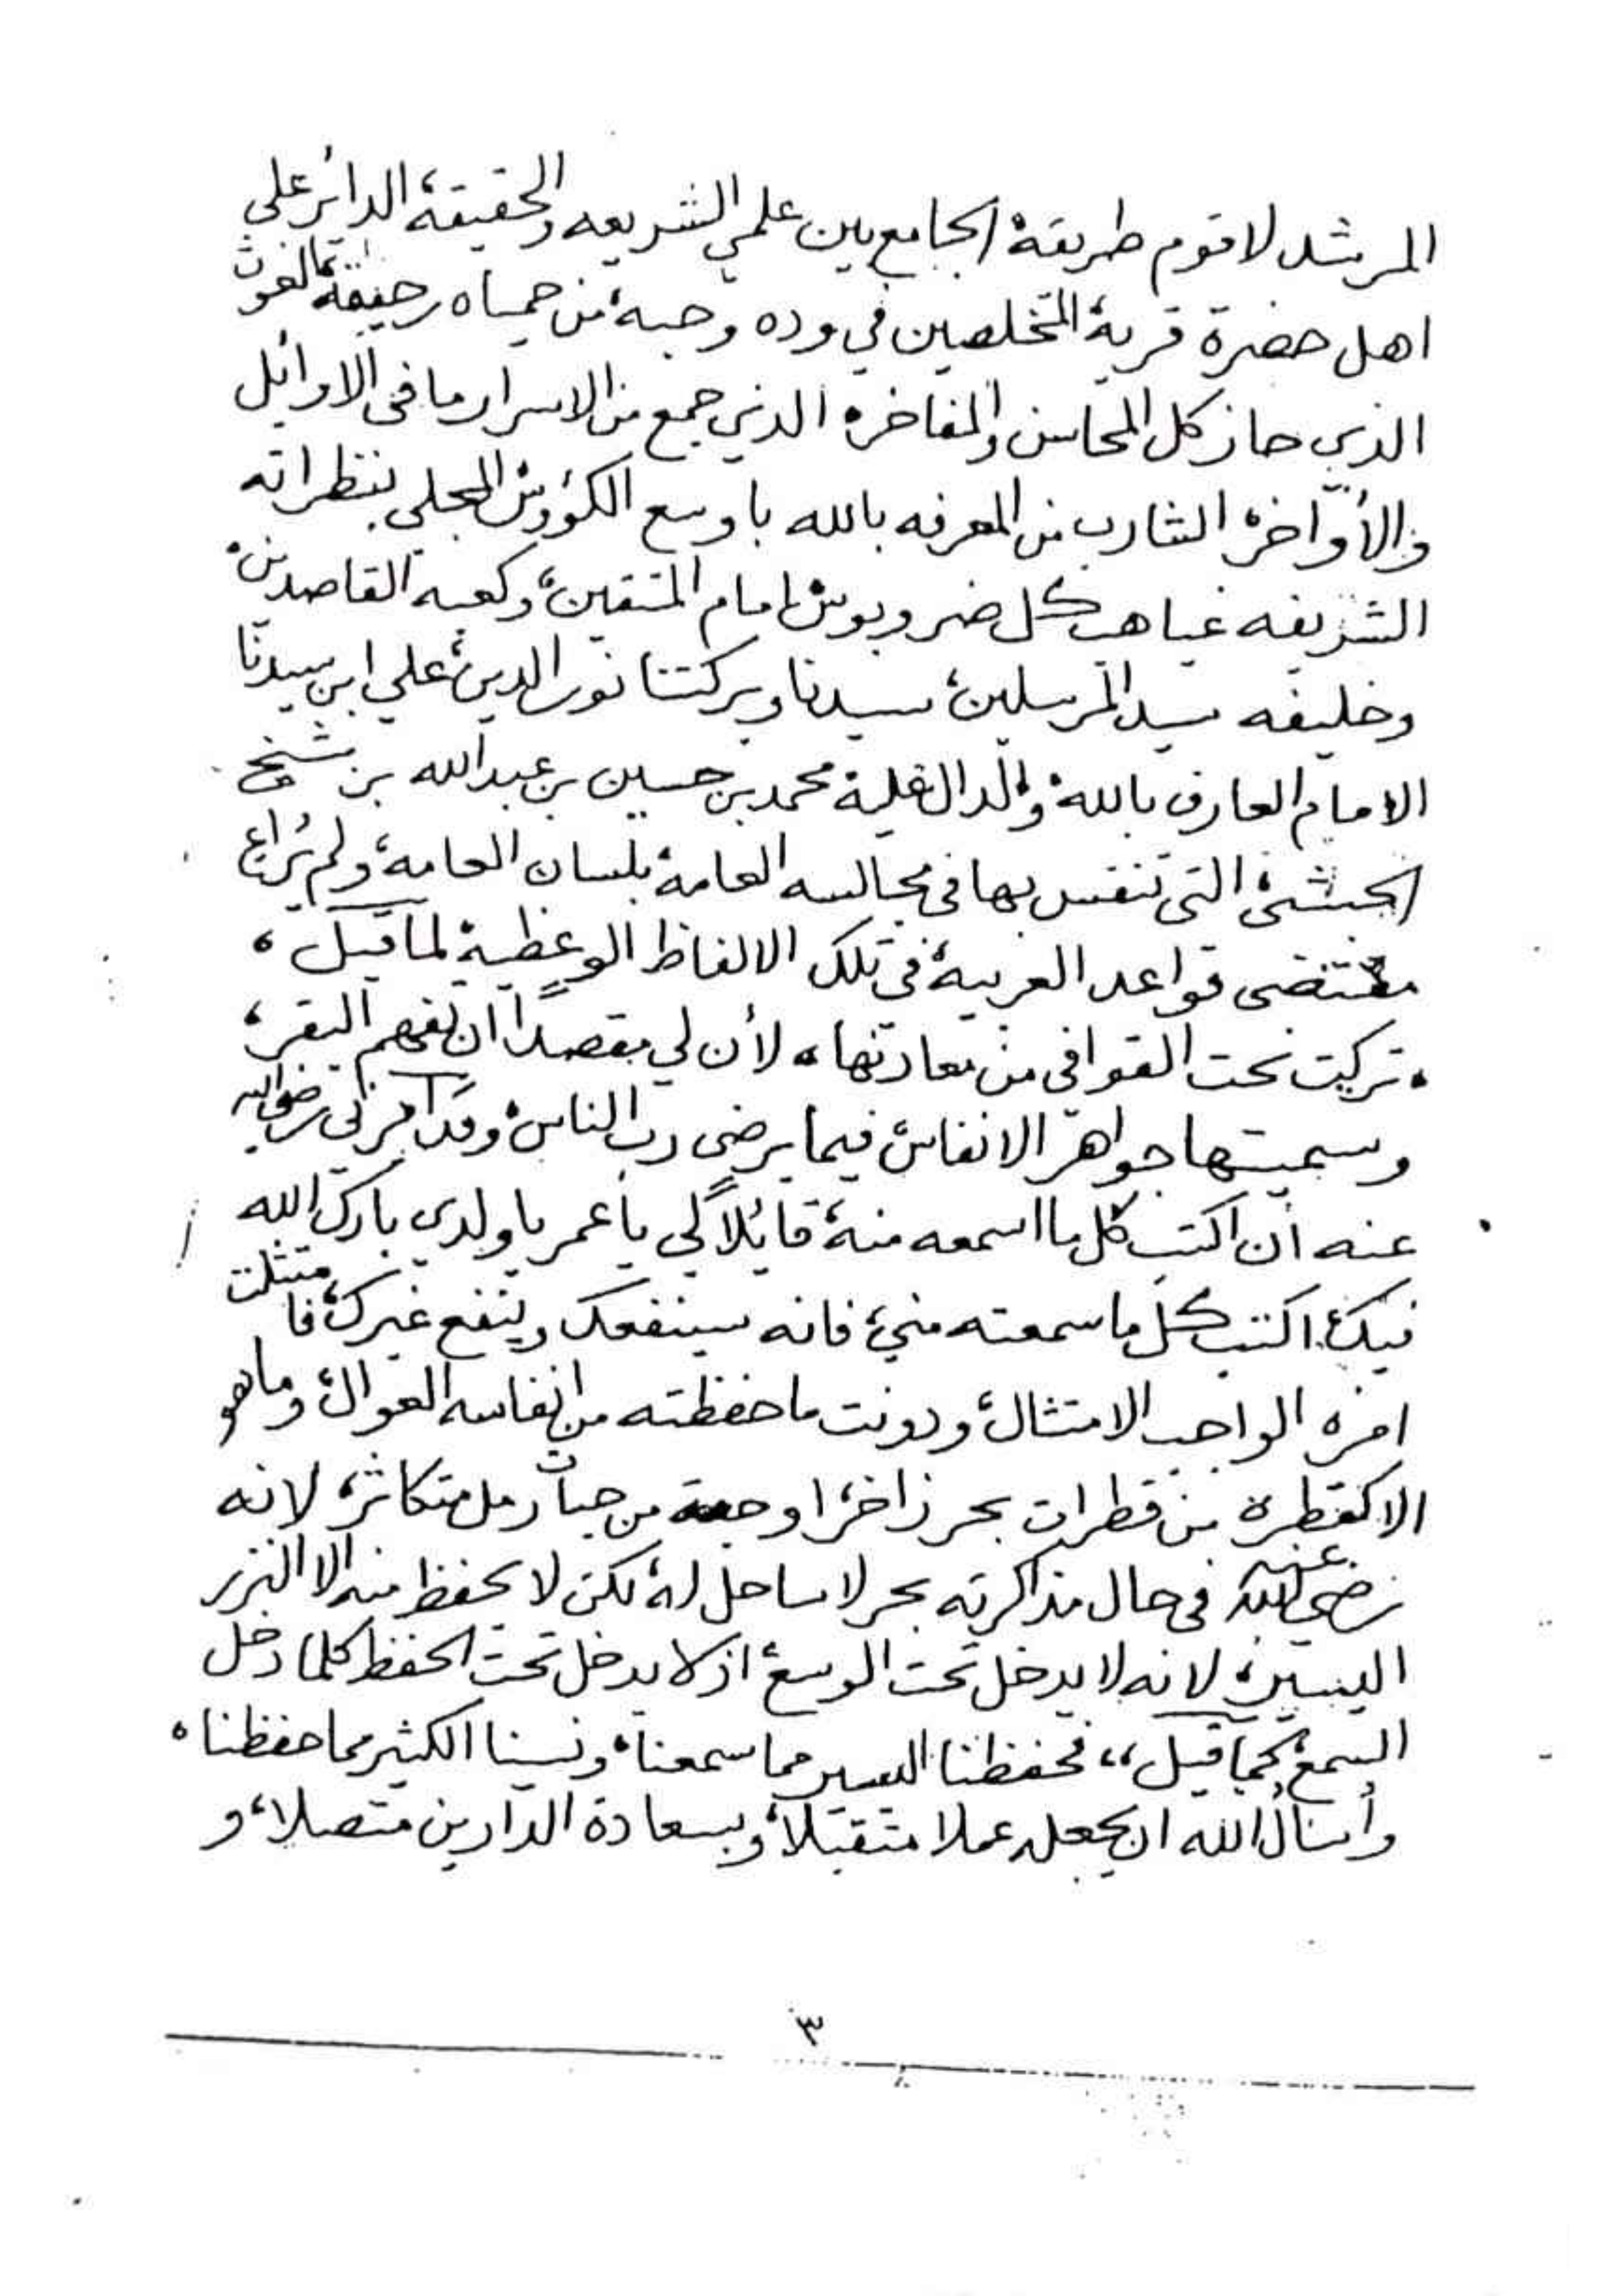 المرشد لاقوم طريقة، الجامع بين علمي الشريعه والحقيقة، الدائر على
اهل حضرة قربة المتخلصين في وده وحبه، من حمياه رحيقة، الغوث
الذي حاز كل المحاسن والمفاخر، الذي جمع من الاسرار ما في الاوائل
والأواخر، الشارب من المعرفه بالله باوسع الكؤوس، المجلي بنظراته
الشريفه غياهب كل ضر وبوس، امام المتقين، وكعبه القاصدين،
وخليفه سيد المرسلين، سيدنا وبركتنا نور الدين، علي ابن سيدنا
الامام العارف بالله، والد محمد بن حسين بن عبدالله بن شيخ
الحبشي، التي تنفس بها في مجالسه العامه، بلسان العامة، ولم يُراع
مقتضى قواعد العربية، في تلك الالفاظ الوعظية، لما قيل ،
، تركيت نحت القوافي من معادنها ، لأن لي مقصداً ان تفهم البقر ،
وسميتها جواهر الانفاس، فيما يرضي رب الناس، وقد امرني رضي الله
عنه ان اكتب كل ما اسمعه منه، قائلاً لي يا عمر يا ولدي بارك الله
فيك، اكتب كل ما سمعته مني، فانه سينفعك وينفع غيرك، فامتثلت
امره الواجب الامتثال، ودونت ما حفظته من انفاسه العوال، وما هو
الا كقطرة من قطرات بحر زاخر، او حبة من حبات رمل متكاثر، لانه
رضي الله عنه في حال مذاكرته بحر لا ساحل له، لكن لا يحفظ منه الا النزر
اليسير، لانه لا يدخل تحت الوسع، اذ لا يدخل تحت الحفظ كلما دخل
السمع، كما قيل ،، فحفظنا اليسير مما سمعنا، ونسينا الكثير مما حفظنا ،
وأسألُ الله ان يجعله عملا متقبلاً، وبسعادة الدارين متصلا، و
٣